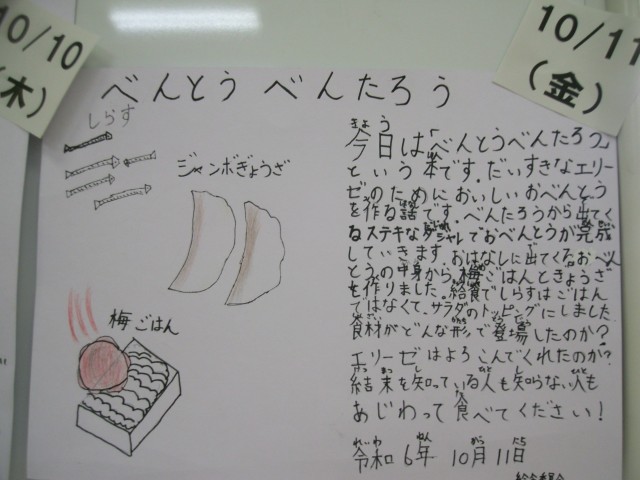 10/10
(木)
10/11
(金)
べんとう べんたろう
しらす
ジャンボぎょうざ
梅ごはん
きょう
今日は「べんとうべんたろう」
という本です。だいすきなエリー
ゼのためにおいしいおべんとう
を作る話です。べんたろうから出てく
るステキなダジャレでおべんとうが完成
していきます。おはなしに出てくるおべん
とうの中身から、梅ごはんとぎょうざ
を作りました。給食でしらすはごはん
ではなくて、サラダのトッピングにしました。
食材がどんな形で登場したのか?
エリーゼはよろこんでくれたのか?
結末を知っている人も知らない人も
あじわって食べてください!
れいわ ねん がつ にち
令和 6年 10月 11日